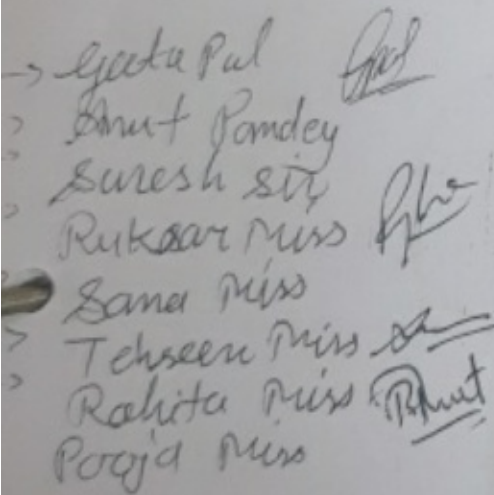 Geeta Pal
Amut Pandey
Suresh Sir
Ruksar Miss
Sana Miss
Tehseen Miss
Rohita Miss
Pooja Miss